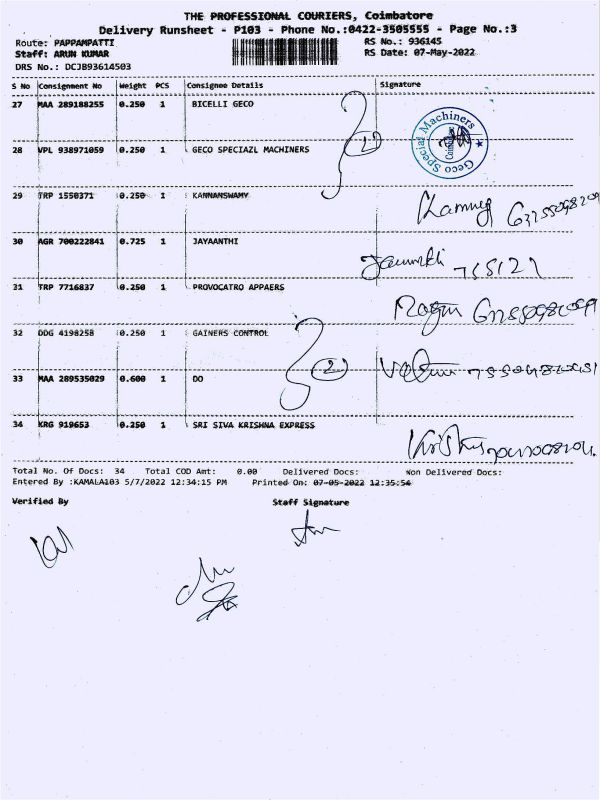 THE PROFESSIONAL COURIERS, Coimbatore
Delivery Runsheet - P103 - Phone No.:0422-3505555 - Page No.:3
Route: PAPPAMPATTI RS No.: 936145
Staff: ARUN KUMAR RS Date: 07-May-2022
DRS No.: DCJB93614503
S No Consignment No Weight PCS Consignee Details Signature
27 MAA 289188255 0.250 1 BICELLI GECO
28 VPL 938971059 0.250 1 GECO SPECIAZL MACHINERS
Geco Special Machiners
29 TRP 1550371 0.250 1 KANNANSWAMY
30 AGR 700222841 0.725 1 JAYAANTHI
31 TRP 7716837 0.250 1 PROVOCATRO APPAERS
32 DDG 4198258 0.250 1 GAINERS CONTROL
2
33 MAA 289535029 0.600 1 DO
34 KRG 919653 0.250 1 SRI SIVA KRISHNA EXPRESS
Total No. Of Docs: 34 Total COD Amt: 0.00 Delivered Docs: Non Delivered Docs:
Entered By :KAMALA103 5/7/2022 12:34:15 PM Printed On: 07-05-2022 12:35:54
Verified By Staff Signature